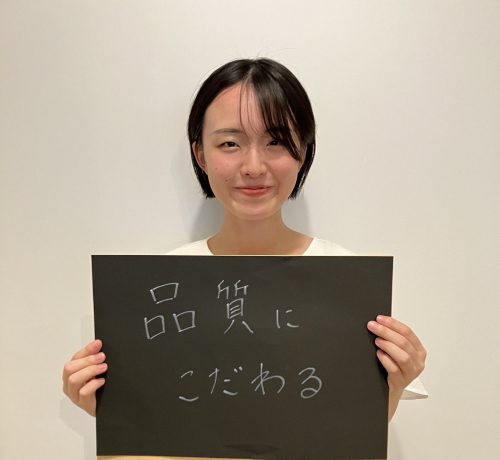 品質に
こだわる